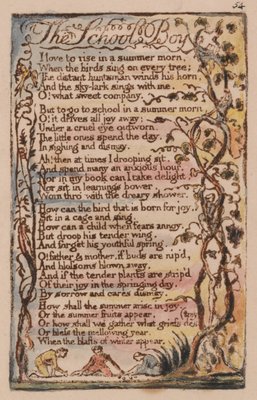 54
The School Boy
I love to rise in a summer morn,
When the birds sing on every tree;
The distant huntsman winds his horn,
And the sky-lark sings with me.
O! what sweet company.
But to go to school in a summer morn
O! it drives all joy away;
Under a cruel eye outworn,
The little ones spend the day,
In sighing and dismay.
Ah! then at times I drooping sit,
And spend many an anxious hour,
Nor in my book can I take delight,
Nor sit in learnings bower,
Worn thro' with the dreary shower.
How can the bird that is born for joy,
Sit in a cage and sing.
How can a child when fears annoy,
But droop his tender wing,
And forget his youthful spring.
O! father & mother, if buds are nip'd,
And blossoms blown away,
And if the tender plants are strip'd
Of their joy in the springing day,
By sorrow and cares dismay,
How shall the summer arise in joy,
Or the summer fruits appear,
Or how shall we gather what griefs des
troy
Or bless the mellowing year,
When the blasts of winter appear.